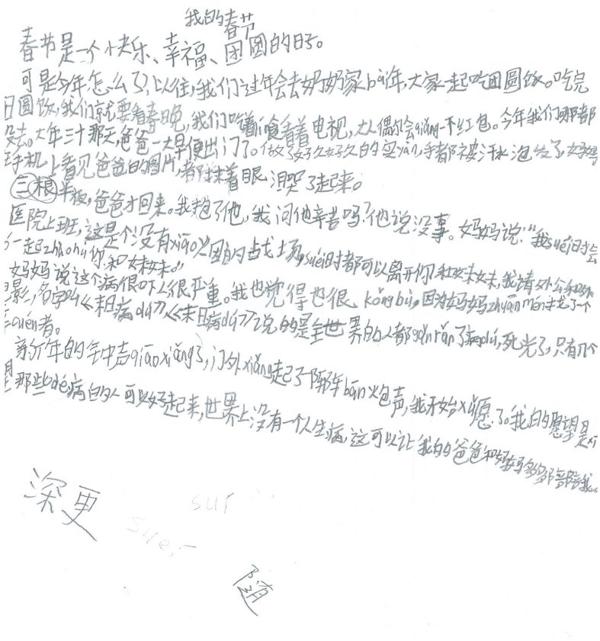 我的春节
春节是一个快乐、幸福、团圆的日子。
可是今年怎么了,以往,我们过年会去奶奶家bài年,大家一起吃团圆饭。吃完
团圆饭,我们就要看春晚,我们吃着líng食看着电视,大人偶尔会qiǎng一下红包。今年我们哪都
没去。大年三十那天,爸爸一大早便出门了。做了好久好久的实,手都被汗水泡发了,妈妈
手机上看见爸爸的图片,看着着眼泪哭了起来。
三根半夜,爸爸才回来。我抱了他,我问他辛苦吗?他说没事。妈妈说:“我suí时会
医院上班,这是个没有xiāo烟的战场,suí时都可以离开你和妹妹,我请外公和外
一起zhào顾你和妹妹。”
妈妈说这个病很吓人很严重。我也觉得也很kǒng bù,因为妈妈zhuān mén找了一个
影,名字叫《末日病dú》,《末日病dú》说的是全世界的人都gǎn rǎn了病dú,死光了,只有几个
cún者。
新年的钟声qiāo xiǎng了,门外xiǎng起了阵阵biān火包声,我开始xǔ愿了。我的愿望是
那些生病的人可以好起来,世界上没有一个人生病,这可以让我的爸爸和妈妈多多陪陪我。
深更
sui
suei
随